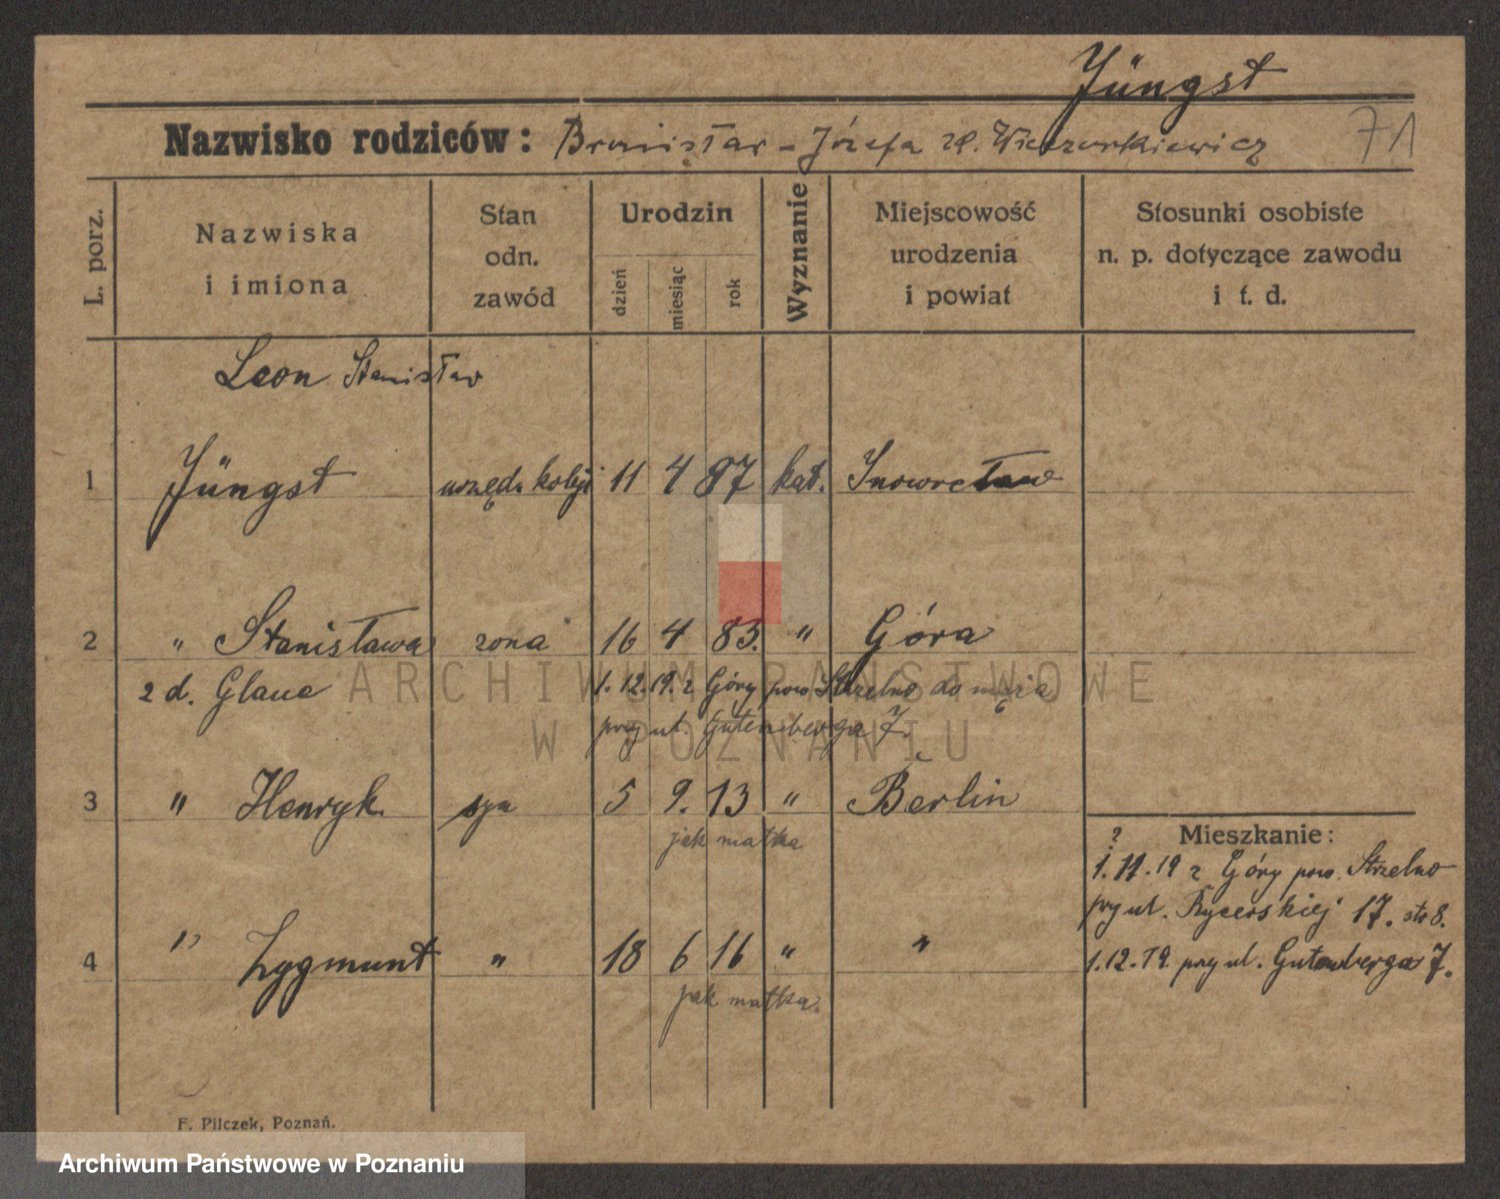 Jüngst
Nazwisko rodziców: Bronisław - Józefa zd. Wieczorkiewicz 71
L. porz.
Nazwiska i imiona
Stan odn. zawód
Urodzin
dzień miesiąc rok
Wyznanie
Miejscowość urodzenia i powiat
Stosunki osobiste n. p. dotyczące zawodu i t. d.
Leon Stanisław
1 Jüngst urzędn. kolej 11 4 87 kat. Inowrocław
2 " Stanisława zona 16 4 83. " Góra
z d. Glaue 1.12.19. z Góry pow Strzelno do męża
przy ul. Gutenberga 7.
3 " Henryk syn 5 9. 13 " Berlin
jak matka
4 " Zygmunt " 18 6 16 " "
jak matka.
? Mieszkanie:
1.11.19 z Góry pow. Strzelno
przy ul. Rycerskiej 17. str 8.
1.12.19. przy ul. Gutenberga 7.
F. Pilczek, Poznań.
ARCHIWUM PAŃSTWOWE
W POZNANIU
Archiwum Państwowe w Poznaniu